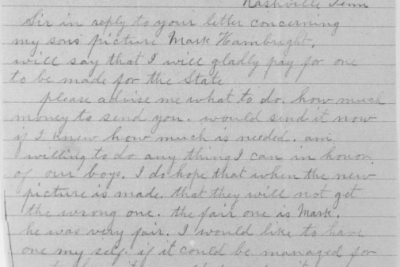 Nashville Tenn
Sir in reply to your letter concerning
my sons picture Mark Hambright,
will say that I will gladly pay for one
to be made for the State
please advise me what to do. how much
money to send you. would send it now
if I knew how much is needed. am
willing to do any thing I can in honor
of our boys. I do hope that when the new
picture is made. that they will not get
the wrong one. the fair one is Mark.
he was very fair. I would like to have
one my self. if it could be managed for